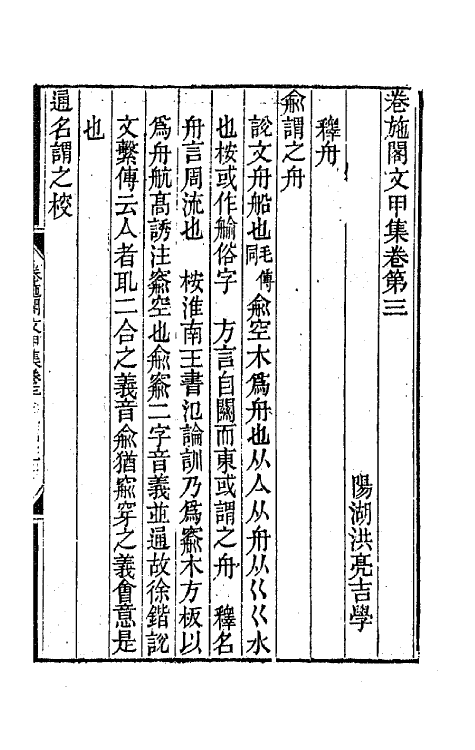 卷施閣文甲集卷第三
陽湖洪亮吉學
釋舟
俞謂之舟
說文舟船也毛傳同俞空木爲舟也从亼从舟从巜巜水
也桉或作艅俗字　方言自關而東或謂之舟　釋名
舟言周流也　桉淮南王書氾論訓乃爲窬木方板以
爲舟航高誘注窬空也俞窬二字音義並通故徐鍇說
文繫傳云亼者乿二合之義音俞猶窬穿之義會意是
也
通名謂之校
卷施閣文甲集卷三